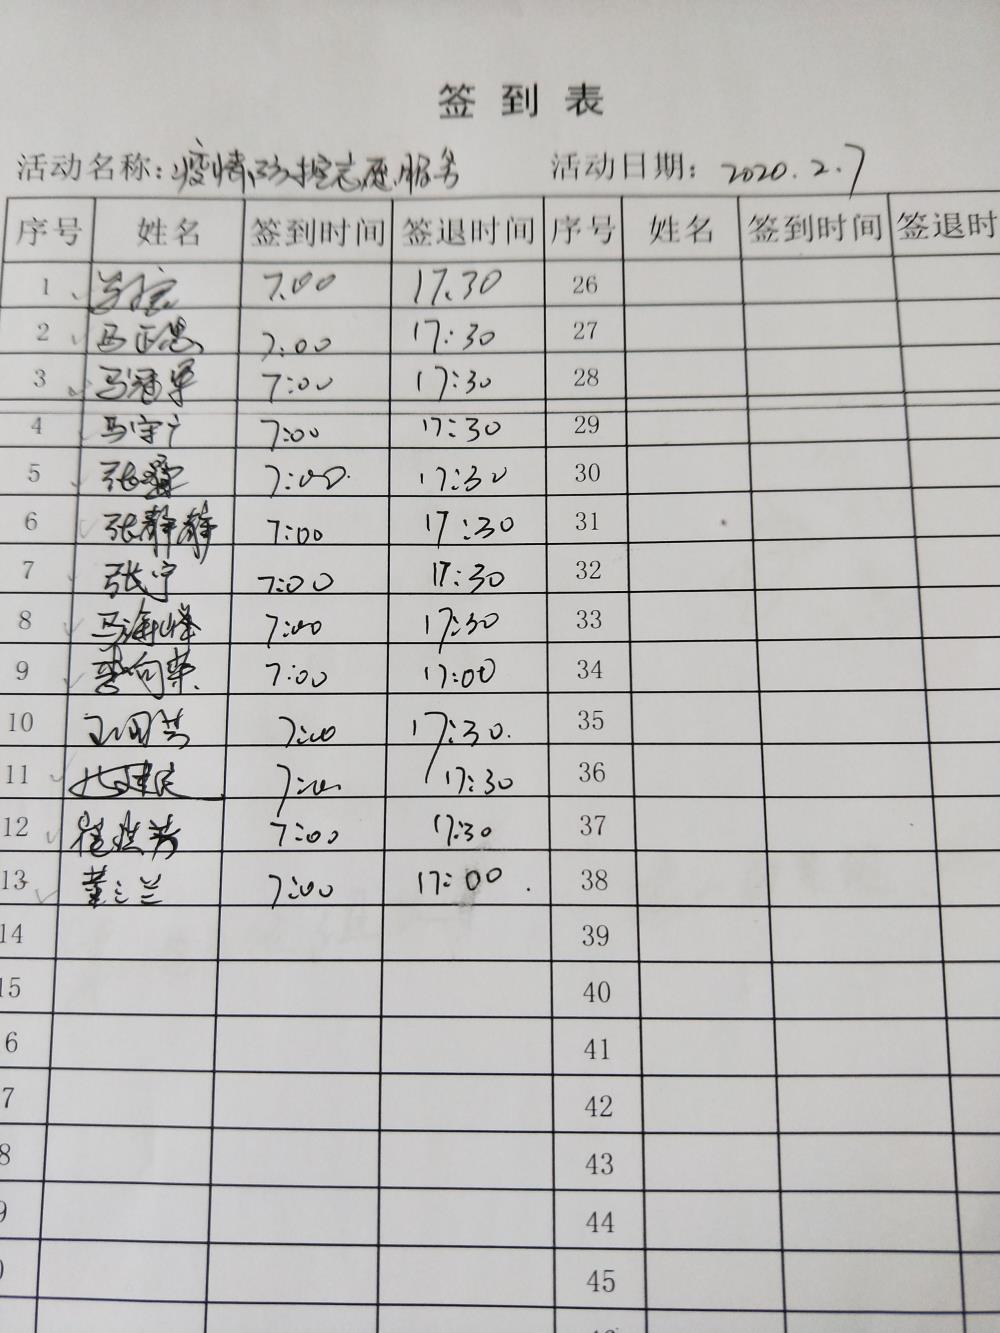 签到表
活动名称:疫情防控志愿服务 活动日期: 2020.2.7
序号 姓名 签到时间 签退时间 序号 姓名 签到时间 签退时
1 7.00 17.30 26
2 马正恩 7:00 17:30 27
3 马冠军 7:00 17:30 28
4 马守广 7:00 17:30 29
5 张 7:00 17:30 30
6 张静静 7:00 17:30 31
7 张宁 7:00 17:30 32
8 马海峰 7:00 17:30 33
9 李向荣 7:00 17:00 34
10 7:00 17:30. 35
11 7:00 17:30 36
12 7:00 17:30 37
13 董兰兰 7:00 17:00. 38
14 39
15 40
6 41
7 42
8 43
9 44
45